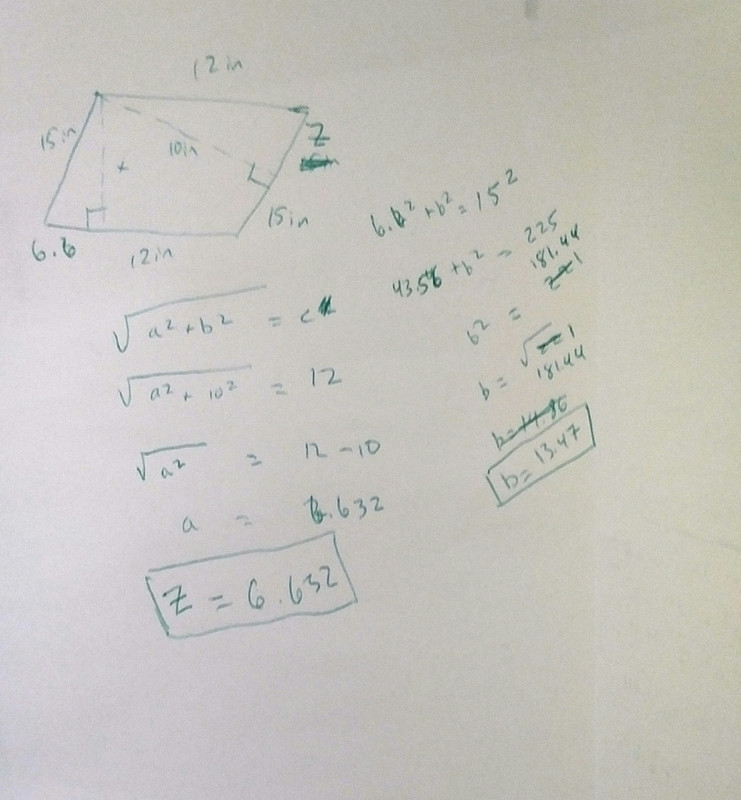 12in
15in
x
10in
Z
15in
6.6
12in
√a²+b² = c
√a² + 10² = 12
√a² = 12-10
a = 6.632
Z = 6.632
6.6² + b² = 15²
43.56 + b² = 225
181.44
b² =
b = √
181.44
b=14.86
b= 13.47